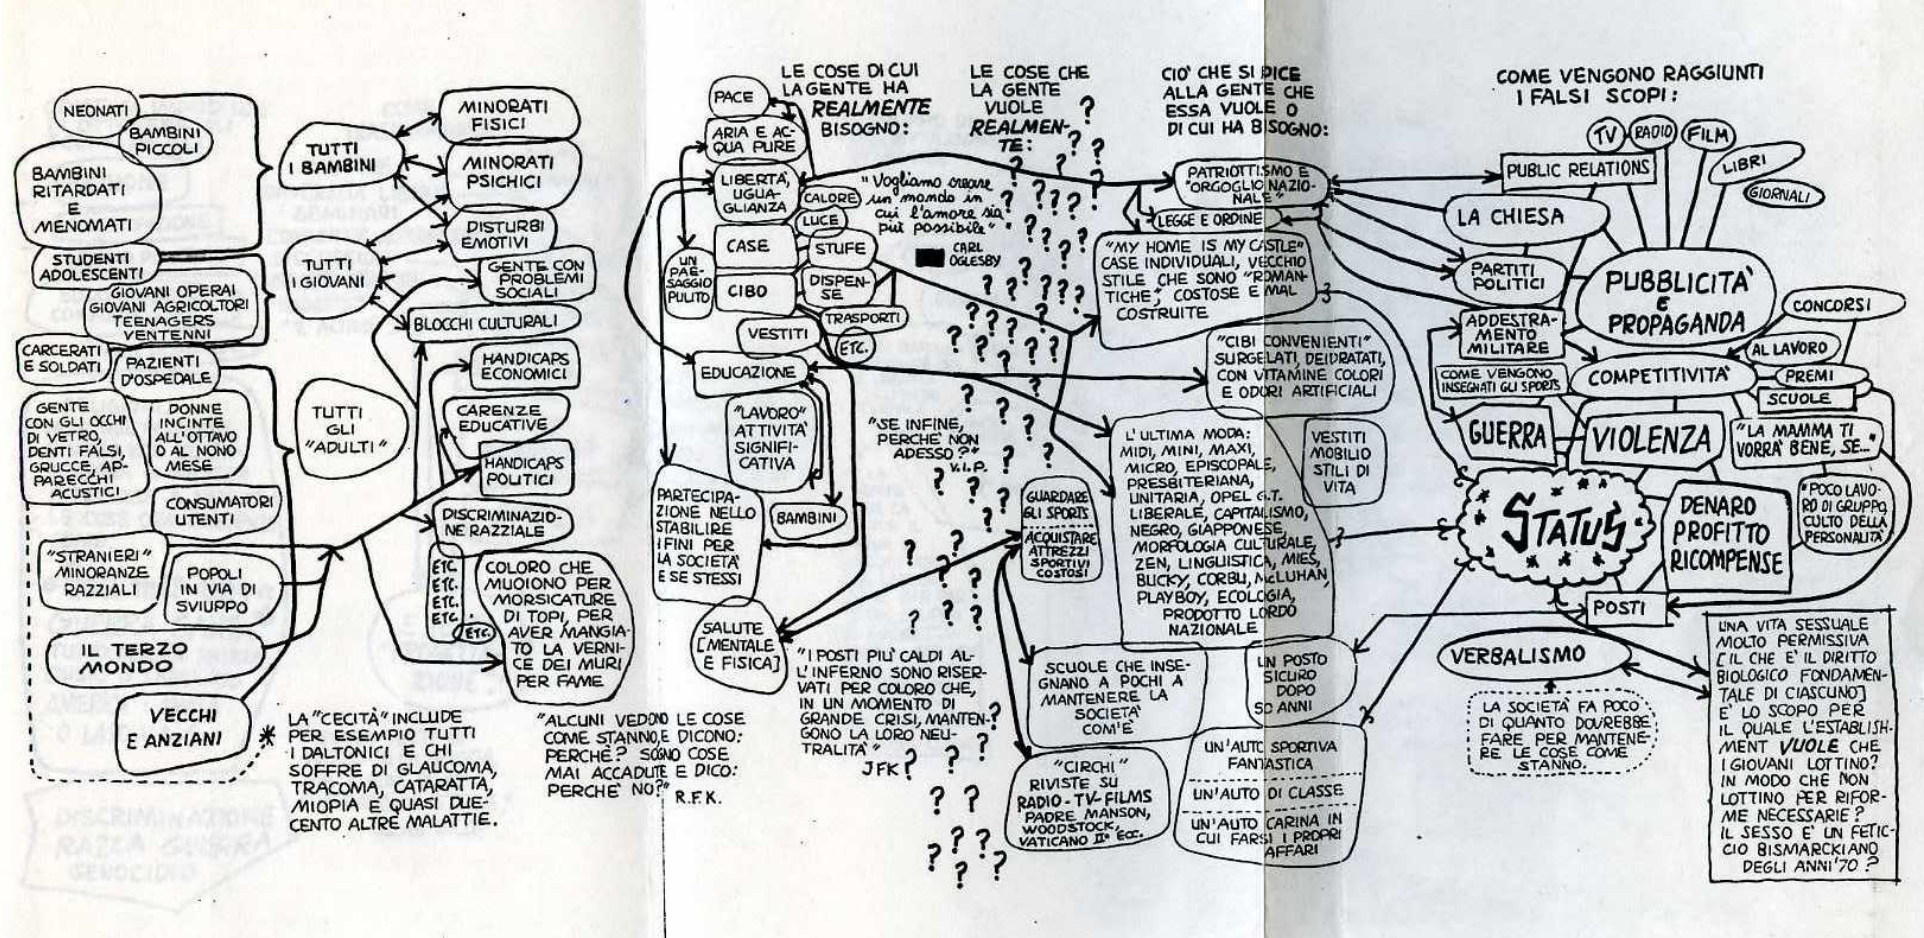 NEONATI
BAMBINI
PICCOLI
BAMBINI
RITARDATI
E
MENOMATI
STUDENTI
ADOLESCENTI
GIOVANI OPERAI
GIOVANI AGRICOLTORI
TEENAGERS
VENTENNI
CARCERATI
E SOLDATI
PAZIENTI
D'OSPEDALE
GENTE
CON GLI OCCHI
DI VETRO,
DENTI FALSI,
GRUCCE, AP-
PARECCHI
ACUSTICI
DONNE
INCINTE
ALL'OTTAVO
O AL NONO
MESE
CONSUMATORI
UTENTI
"STRANIERI"
MINORANZE
RAZZIALI
POPOLI
IN VIA DI
SVIUPPO
IL TERZO
MONDO
VECCHI
E ANZIANI
TUTTI
I BAMBINI
TUTTI
I GIOVANI
TUTTI
GLI
"ADULTI"
MINORATI
FISICI
MINORATI
PSICHICI
DISTURBI
EMOTIVI
GENTE CON
PROBLEMI
SOCIALI
BLOCCHI CULTURALI
HANDICAPS
ECONOMICI
CARENZE
EDUCATIVE
HANDICAPS
POLITICI
DISCRIMINAZIO-
NE RAZZIALE
ETC.
ETC.
ETC.
ETC.
ETC.
COLORO CHE
MUOIONO PER
MORSICATURE
DI TOPI, PER
AVER MANGIA-
TO LA VERNI-
CE DEI MURI
PER FAME
* LA "CECITÀ" INCLUDE
PER ESEMPIO TUTTI
I DALTONICI E CHI
SOFFRE DI GLAUCOMA,
TRACOMA, CATARATTA,
MIOPIA E QUASI DUE-
CENTO ALTRE MALATTIE.
"ALCUNI VEDONO LE COSE
COME STANNO, E DICONO:
PERCHÈ? SOGNO COSE
MAI ACCADUTE E DICO:
PERCHÈ NO?"
R.F.K.
LE COSE DI CUI
LA GENTE HA
REALMENTE
BISOGNO:
PACE
ARIA E AC-
QUA PURE
LIBERTÀ,
UGUA-
GLIANZA
CALORE
LUCE
CASE
STUFE
UN
PAE-
SAGGIO
PULITO
CIBO
DISPEN-
SE
TRASPORTI
VESTITI
ETC.
EDUCAZIONE
"LAVORO"
ATTIVITÀ
SIGNIFI-
CATIVA
PARTECIPA-
ZIONE NELLO
STABILIRE
I FINI PER
LA SOCIETÀ
E SE STESSI
BAMBINI
SALUTE
[MENTALE
E FISICA]
LE COSE CHE
LA GENTE
VUOLE
REALMEN-
TE:
"Vogliamo creare
un mondo in
cui l'amore sia
più possibile"
CARL
OGLESBY
"SE INFINE,
PERCHÈ NON
ADESSO?"
V.I.P.
"I POSTI PIU' CALDI AL-
L'INFERNO SONO RISER-
VATI PER COLORO CHE,
IN UN MOMENTO DI
GRANDE CRISI, MANTEN-
GONO LA LORO NEU-
TRALITÀ"
JFK
GUARDARE
GLI SPORTS
ACQUISTARE
ATTREZZI
SPORTIVI
COSTOSI
SCUOLE CHE INSE-
GNANO A POCHI A
MANTENERE LA
SOCIETÀ
COM'È
"CIRCHI"
RIVISTE SU
RADIO-TV-FILMS
PADRE MANSON,
WOODSTOCK,
VATICANO II° ECC.
CIO' CHE SI DICE
ALLA GENTE CHE
ESSA VUOLE O
DI CUI HA BISOGNO:
PATRIOTTISMO E
"ORGOGLIO NAZIO-
NALE"
LEGGE E ORDINE
"MY HOME IS MY CASTLE"
CASE INDIVIDUALI, VECCHIO
STILE CHE SONO "ROMAN-
TICHE", COSTOSE E MAL
COSTRUITE
"CIBI CONVENIENTI"
SURGELATI, DEIDRATATI,
CON VITAMINE COLORI
E ODORI ARTIFICIALI
L'ULTIMA MODA:
MIDI, MINI, MAXI,
MICRO, EPISCOPALE,
PRESBITERIANA,
UNITARIA, OPEL G.T.
LIBERALE, CAPITALISMO,
NEGRO, GIAPPONESE,
MORFOLOGIA CULTURALE,
ZEN, LINGUISTICA, MIES,
BUCKY, CORBU, McLUHAN,
PLAYBOY, ECOLOGIA,
PRODOTTO LORDO
NAZIONALE
VESTITI
MOBILIO
STILI DI
VITA
UN POSTO
SICURO
DOPO
50 ANNI
UN'AUTO SPORTIVA
FANTASTICA
UN'AUTO DI CLASSE
UN'AUTO CARINA IN
CUI FARSI I PROPRI
AFFARI
COME VENGONO RAGGIUNTI
I FALSI SCOPI:
TV
RADIO
FILM
LIBRI
GIORNALI
PUBLIC RELATIONS
LA CHIESA
PARTITI
POLITICI
PUBBLICITÀ
E
PROPAGANDA
CONCORSI
ADDESTRA-
MENTO
MILITARE
AL LAVORO
COME VENGONO
INSEGNATI GLI SPORTS
COMPETITIVITÀ
PREMI
SCUOLE
GUERRA
VIOLENZA
"LA MAMMA TI
VORRA' BENE, SE..."
STATUS
DENARO
PROFITTO
RICOMPENSE
"POCO LAVO-
RO DI GRUPPO,
CULTO DELLA
PERSONALITÀ"
POSTI
VERBALISMO
LA SOCIETÀ FA POCO
DI QUANTO DOVREBBE
FARE PER MANTENE-
RE LE COSE COME
STANNO.
UNA VITA SESSUALE
MOLTO PERMISSIVA
[IL CHE E' IL DIRITTO
BIOLOGICO FONDAMEN-
TALE DI CIASCUNO]
E' LO SCOPO PER
IL QUALE L'ESTABLISH-
MENT VUOLE CHE
I GIOVANI LOTTINO?
IN MODO CHE NON
LOTTINO PER RIFOR-
ME NECESSARIE?
IL SESSO E' UN FETIC-
CIO BISMARCKIANO
DEGLI ANNI '70?